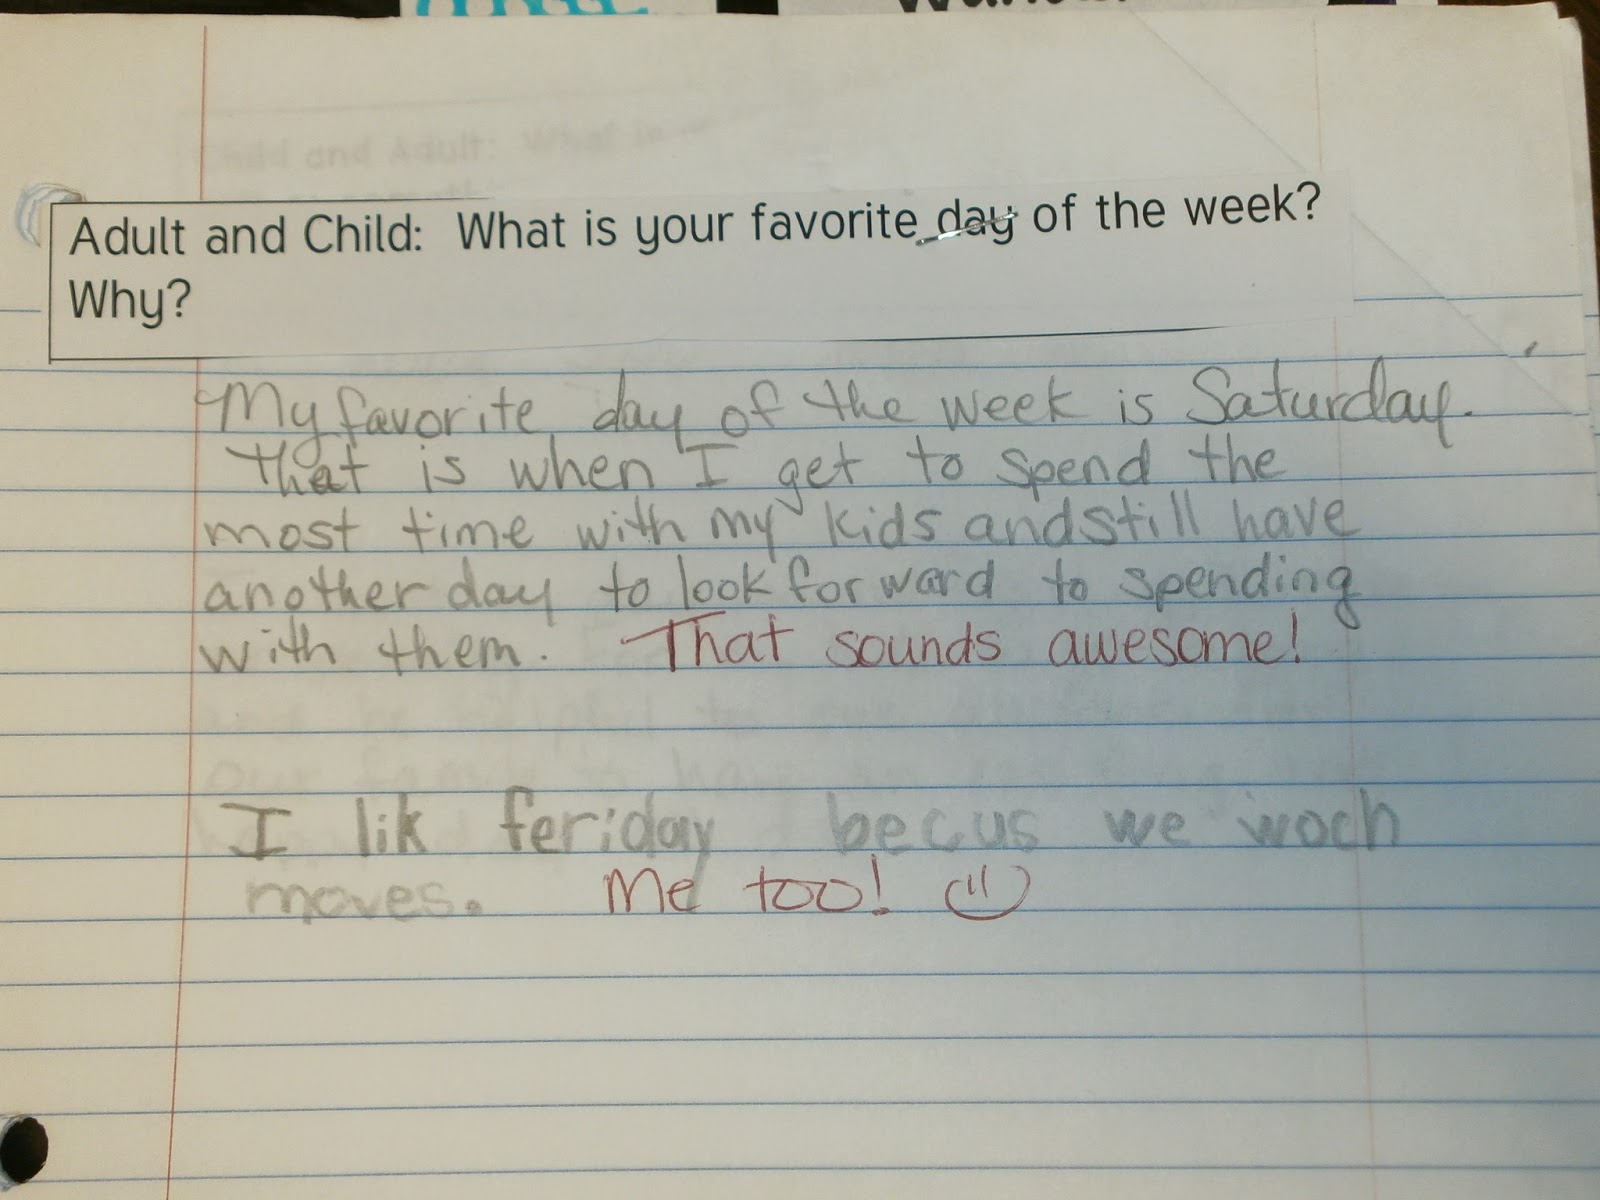 Adult and Child: What is your favorite day of the week?
Why?
My favorite day of the week is Saturday.
That is when I get to spend the
most time with my kids and still have
another day to look forward to spending
with them. That sounds awesome!
I lik feriday becus we woch
moves. Me too!